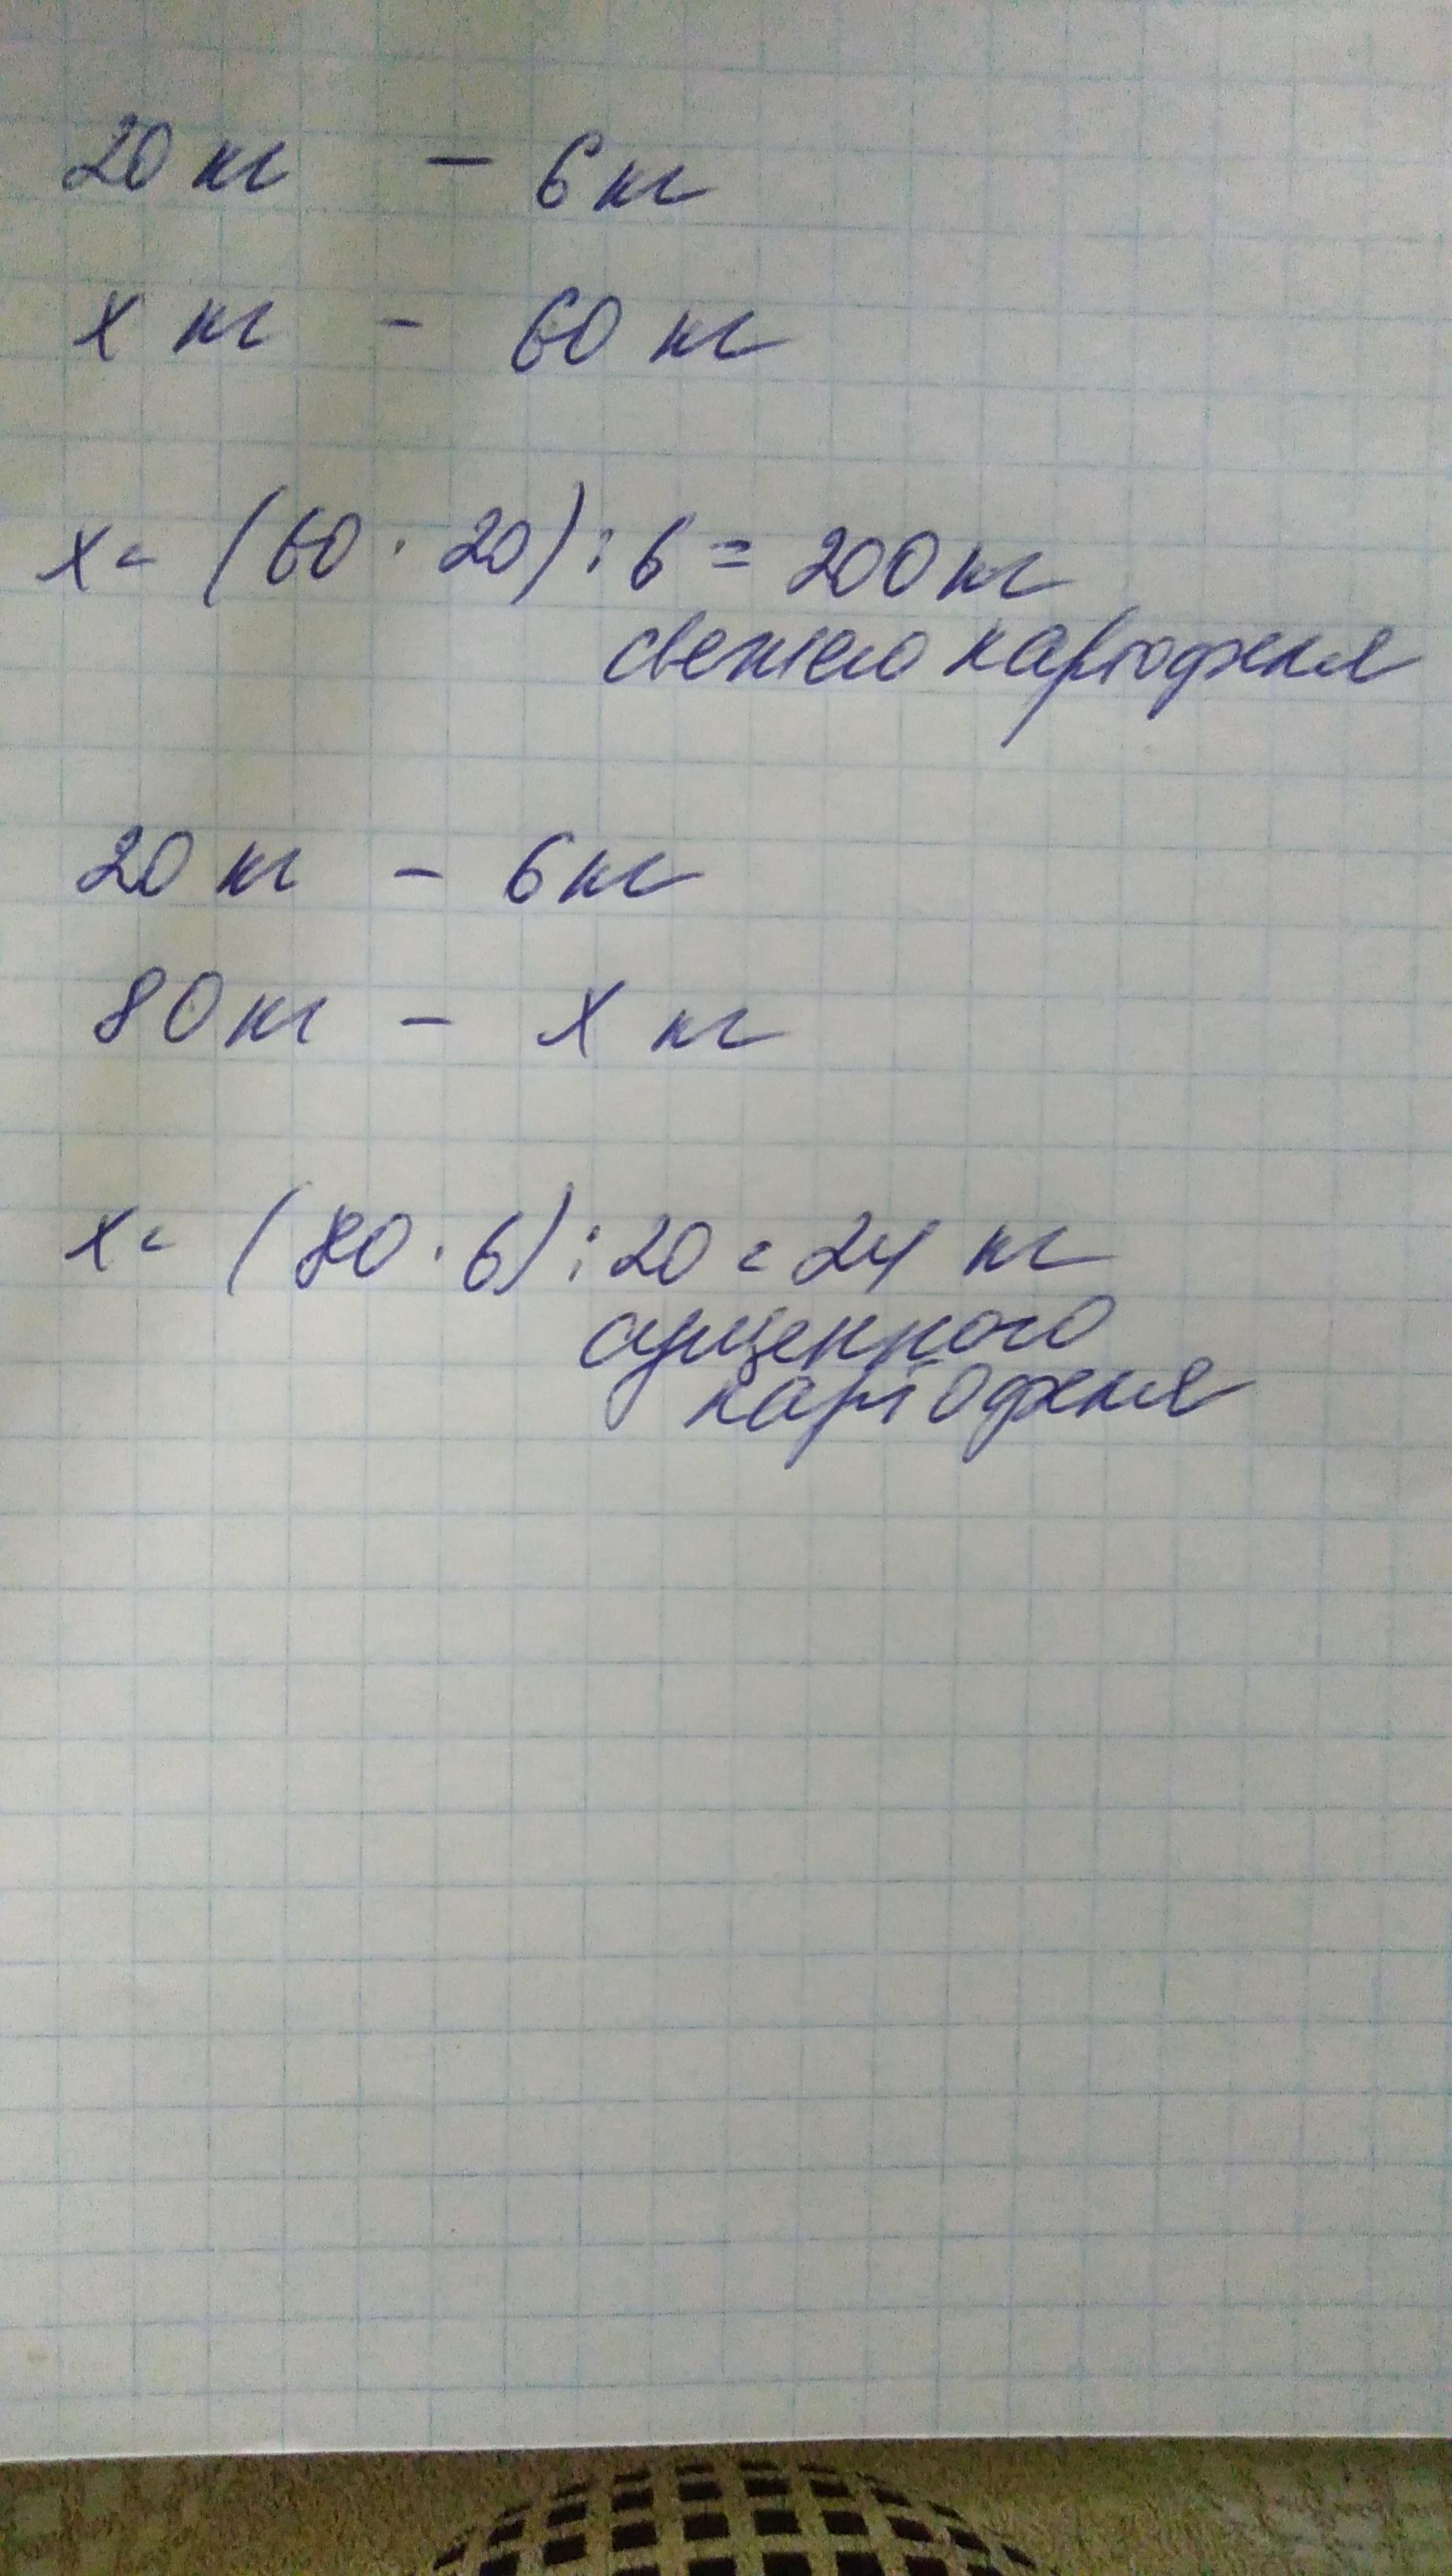 20 кг - 6 кг
х кг - 60 кг
х = (60 · 20) : 6 = 200 кг
свежего картофеля
20 кг - 6 кг
80 кг - х кг
х = (80 · 6) : 20 = 24 кг
сушенного
картофеля